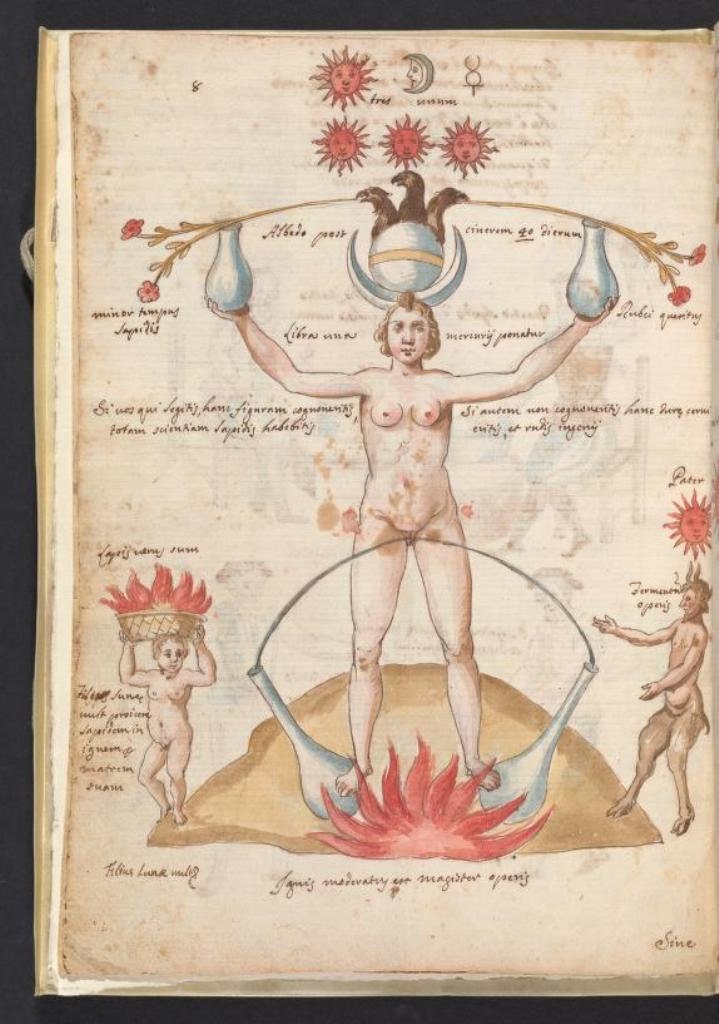 8
tres unum
Albedo post cinerem 40 dierum
minor tempus
lapidis
Rubei queritus
Libra una mercurij ponatur
Si vos qui legitis, hanc figuram cognoveritis,
totam scientiam lapidis habebitis
Si autem non cognoveritis hanc
eritis, et rudis ingenij
Pater
Lapis verus sum
Fermentum
operis
Filius Lunae
vult proicere
lapidem in
ignem
matrem
suam
Filius Lunæ
Ignis moderatus est magister operis
Sine